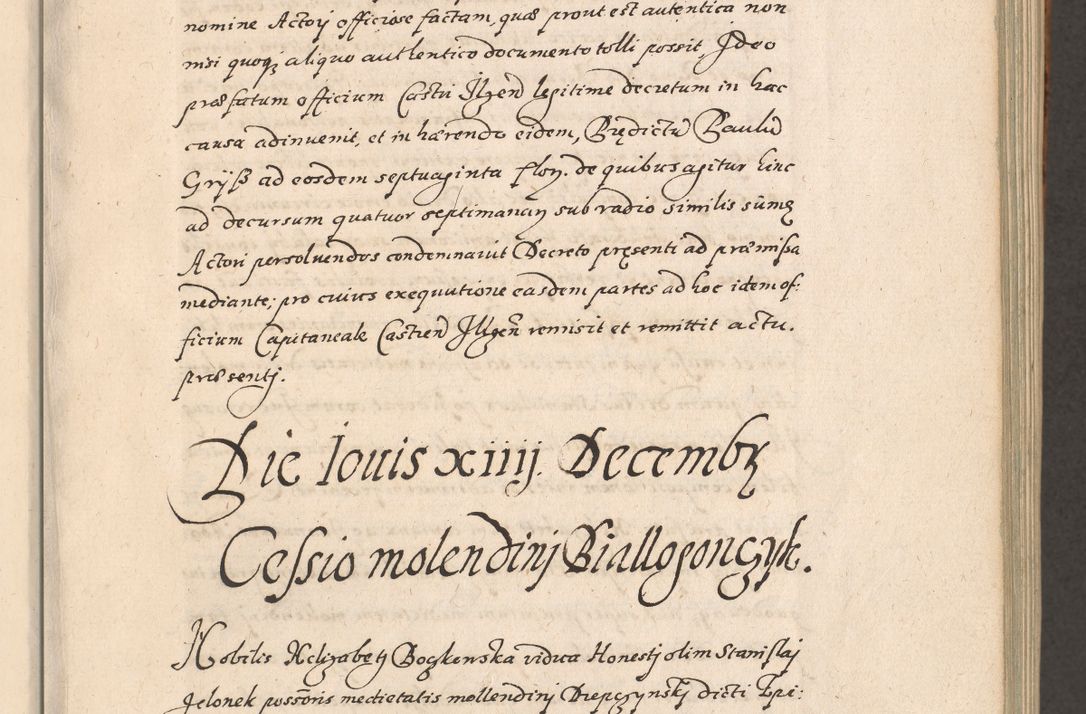 nomine Actorj officiose factam, quæ prout est autentica non
nisi quoqz aliquo authentico documento tolli possit, Ideo
præfatum officium Castri Ilzen legitime decretum in hac
causa adinvenit, et in hærendo eidem, Prędictũ Paulũ
Gryß ad eosdem septuaginta flon. de quibus agitur hinc
ad decursum quatuor septimanaŋ sub radio similis sũmę
Actori persolvendos condemnavit Decreto pręsenti ad præmissa
mediante, pro cuius exequutione easdem partes ad hoc idem of:
ficium Capitaneale Castren Ilzen remisit et remittit actu.
præsentj.
Die Iouis xiiij. Decembr
Cessio molendinj Biallogonczyk.
Nobilis Helizabetj Boczkenska vidua Honestj olim Stanislaj
Jelonek possoris medietatis mollendinj Drepczynskj dicti